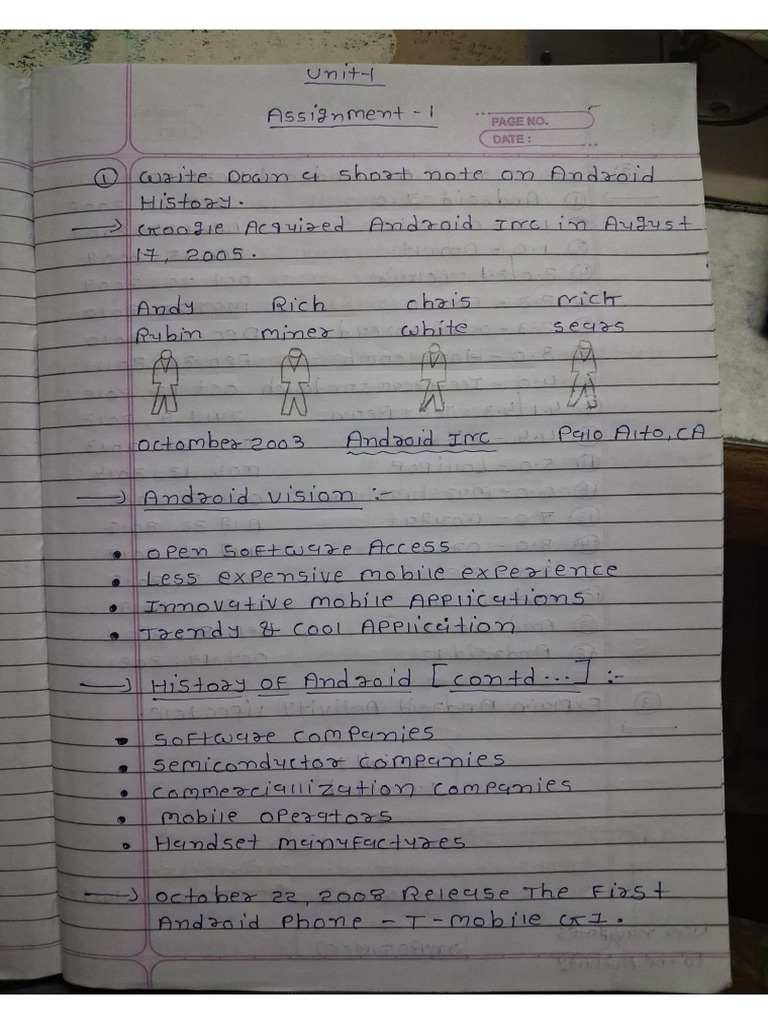 Unit-1
Assignment-1
PAGE NO.
DATE:
① Write Down a short note on Android
History.
→ Google Acquired Android Inc in August
17, 2005.
Andy Rich chris nick
Rubin miner white sears
octomber 2003 Android Inc Palo Alto, CA
→ Android vision :-
• open software Access
• Less expensive mobile experience
• Innovative mobile Applications
• Trendy & cool Application
→ History of Android [contd...] :-
• software companies
• semiconductor companies
• commerciallization companies
• mobile operators
• Handset manufactures
→ october 22, 2008 Release The First
Android Phone - T-mobile G1.